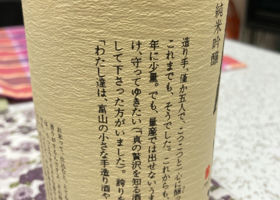 純米吟醸
造り手、僅か五人で、こつこつと一心に醸
これまでも、そうでした。これからも、
年に少量。でも、量産では出せないうま
け、守ってゆきたい「真の贅沢を知る酒
して下さった方がいました)。誇りを
「わたし達は、富山の小さな手造り酒や